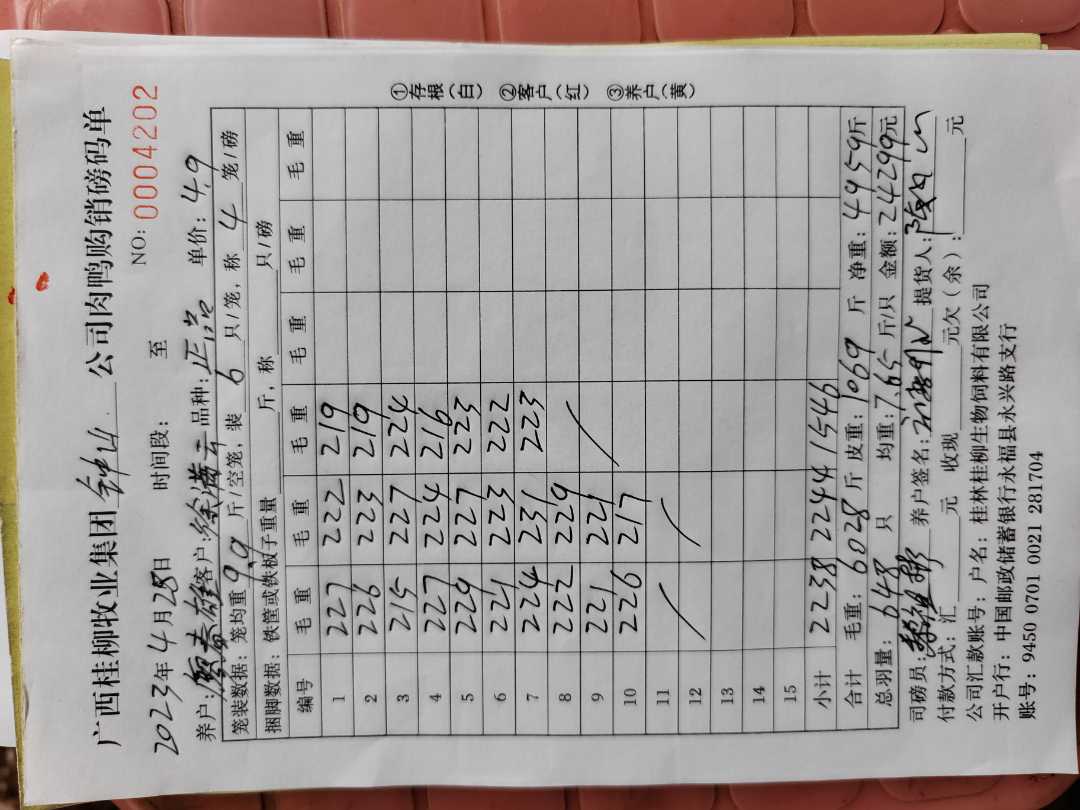 广西桂柳牧业集团 钟山 公司肉鸭购销磅码单
NO: 0004202
2023年4月28日 时间段: 至
养户: 春雄 客户: 徐满云 品种: 正品 单价: 4.9
笼装数据: 笼均重 9.9 斤/空笼, 装 6 只/笼, 称 4 笼/磅
捆脚数据: 铁筐或铁板子重量 斤, 称 只/磅
编号 毛重 毛重 毛重 毛重 毛重 毛重
1 227 222 219
2 226 223 219
3 215 227 224
4 227 224 216
5 229 227 223
6 221 223 222
7 224 231 223
8 222 229
9 221 221
10 226 217
11
12
13
14
15
小计 2238 2244 1546
合计 毛重: 6028 斤 皮重: 1069 斤 净重: 4959斤
总羽量: 648 只 均重: 7.65 斤/只 金额: 24299元
司磅员: 养户签名: 提货人:
付款方式: 汇 元 收现 元欠(余): 元
公司汇款账号: 户名: 桂林桂柳生物饲料有限公司
开户行: 中国邮政储蓄银行永福县永兴路支行
账号: 9450 0701 0021 281704
①存根(白) ②客户(红) ③养户(黄)